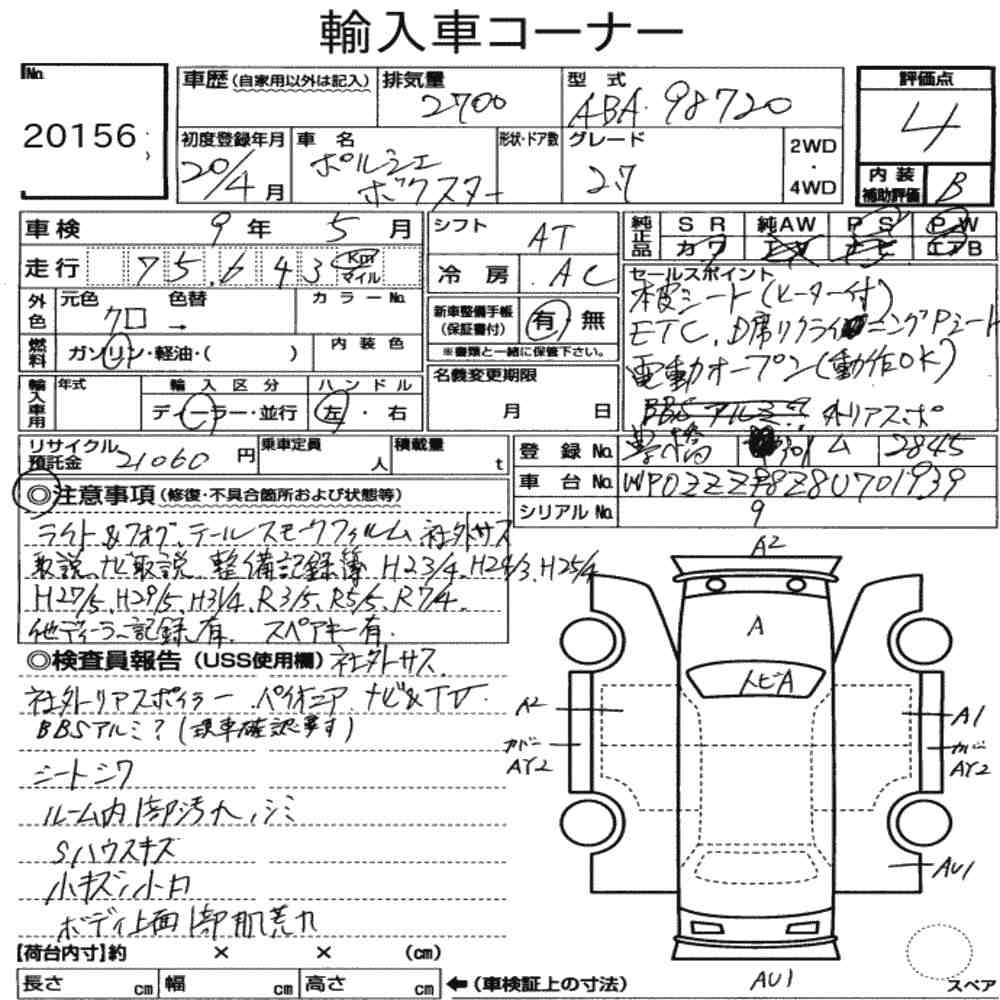 輸入車コーナー
No. 20156
車歴(自家用以外は記入)
排気量 2700
型式 ABA・98720
評価点 4
初度登録年月 20/4月
車名 ポルシェ ボクスター
形状・ドア数
グレード 2.7
2WD・4WD
内装補助評価 B
車検 9年 5月
シフト AT
純正品 SR 純AW PS PW
カワ エアB
走行 75,643 Km マイル
冷房 AC
セールスポイント
本皮シート(ヒーター付)
ETC、D席リクライニングPシート
電動オープン(動作OK)
BBSアルミ? 外リアスポ
外色 元色 クロ → 色替 カラーNo.
新車整備手帳(保証書付) 有・無
※書類と一緒に保管下さい。
燃料 ガソリン・軽油・( )
内装色
名義変更期限 月 日
輸入車用 年式
輸入区分 ディーラー・並行
ハンドル 左・右
リサイクル預託金 21060円
乗車定員 人
積載量 t
登録No. 豊橋 301 ム 2845
車台No. WP0ZZZ98Z8U701939
シリアルNo.
9
◎注意事項(修復・不具合箇所および状態等)
ライト&フォグ、テールスモークフィルム 社外サス
取説、ナビ取説、整備記録簿 H23/4、H24/3、H25/4
H27/5、H29/5、H31/4、R3/5、R5/5、R7/4、
他ディーラー記録有、スペアキー有.
◎検査員報告(USS使用欄)社外サス
社外リアスポイラー パイオニア ナビ&TV
BBSアルミ?(現車確認要す)
シートシワ
ルーム内1部汚れ、シミ
Sハウスキズ
小キズ小凹
ボディ上面1部肌荒れ
A2
A
トビA
A2
カバー
AY2
A1
カバー
AY2
AU1
AU1
【荷台内寸】約 × × (cm)
長さ cm 幅 cm 高さ cm ←(車検証上の寸法)
スペア